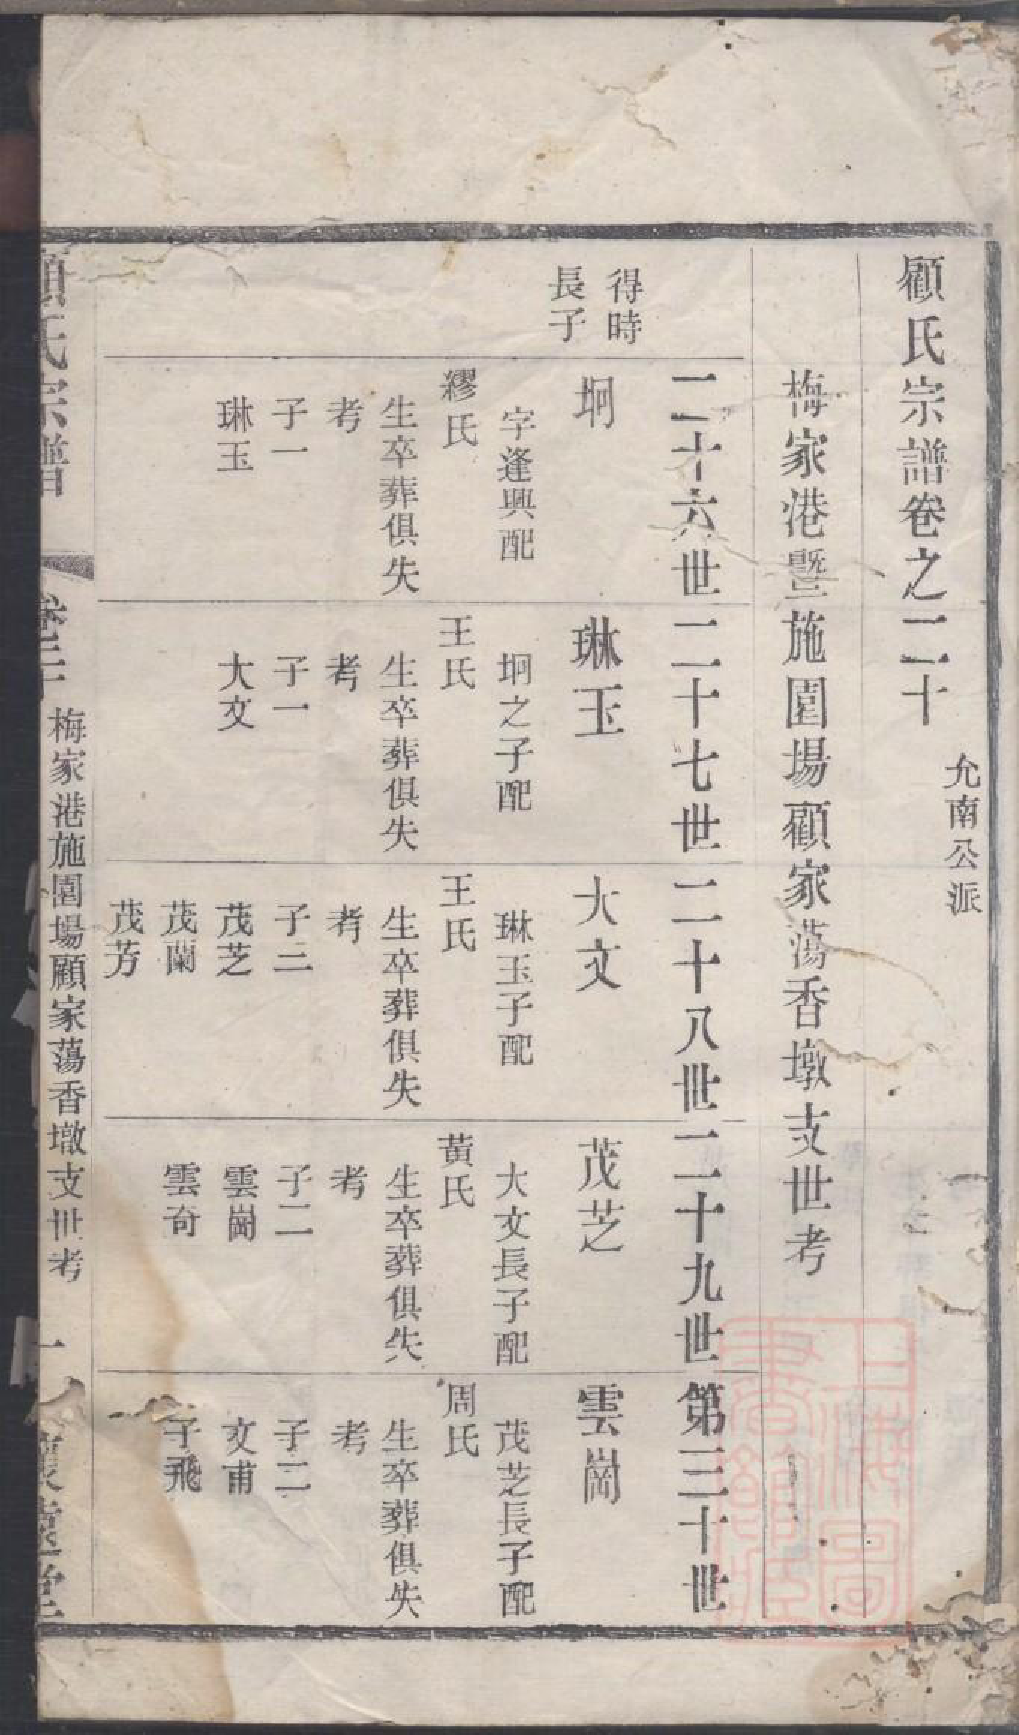 顧氏宗譜卷之二十
允南公派
梅家港暨施園場顧家蕩香墩支世考
二十六世
得時
長子
坰
字逢興配
繆氏
生卒葬俱失
考
子一
琳玉
二十七世
琳玉
坰之子配
王氏
生卒葬俱失
考
子一
大文
二十八世
大文
琳玉子配
王氏
生卒葬俱失
考
子三
茂芝
茂蘭
茂芳
二十九世
茂芝
大文長子配
黃氏
生卒葬俱失
考
子二
雲崗
雲奇
第三十世
雲崗
茂芝長子配
周氏
生卒葬俱失
考
子二
文甫
子飛
顧氏宗譜
卷二十
梅家港施園場顧家蕩香墩支世考
一
懷遠堂
上海圖書館藏